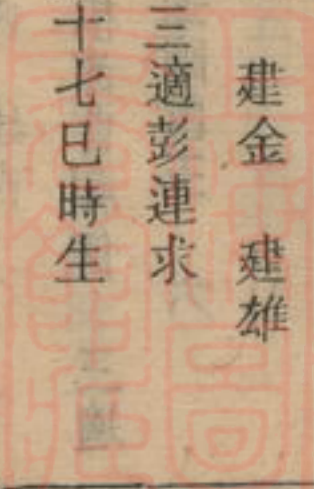 建金　建雄
三適彭連求
十七巳時生